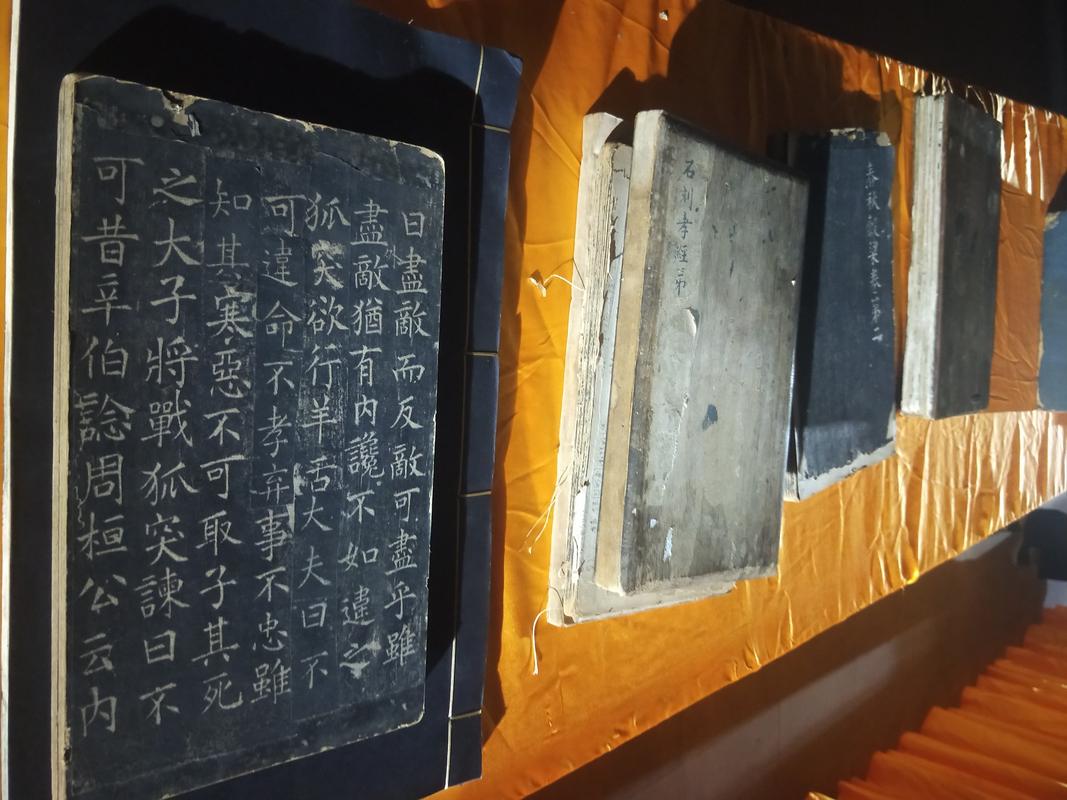 曰盡敵而反敵可盡乎雖
盡敵猶有内讒不如違之
狐突欲行羊舌大夫曰不
可違命不孝弃事不忠雖
知其寒惡不可取子其死
之大子將戰狐突諫曰不
可昔辛伯諗周桓公云内
石刻孝經
春秋穀梁